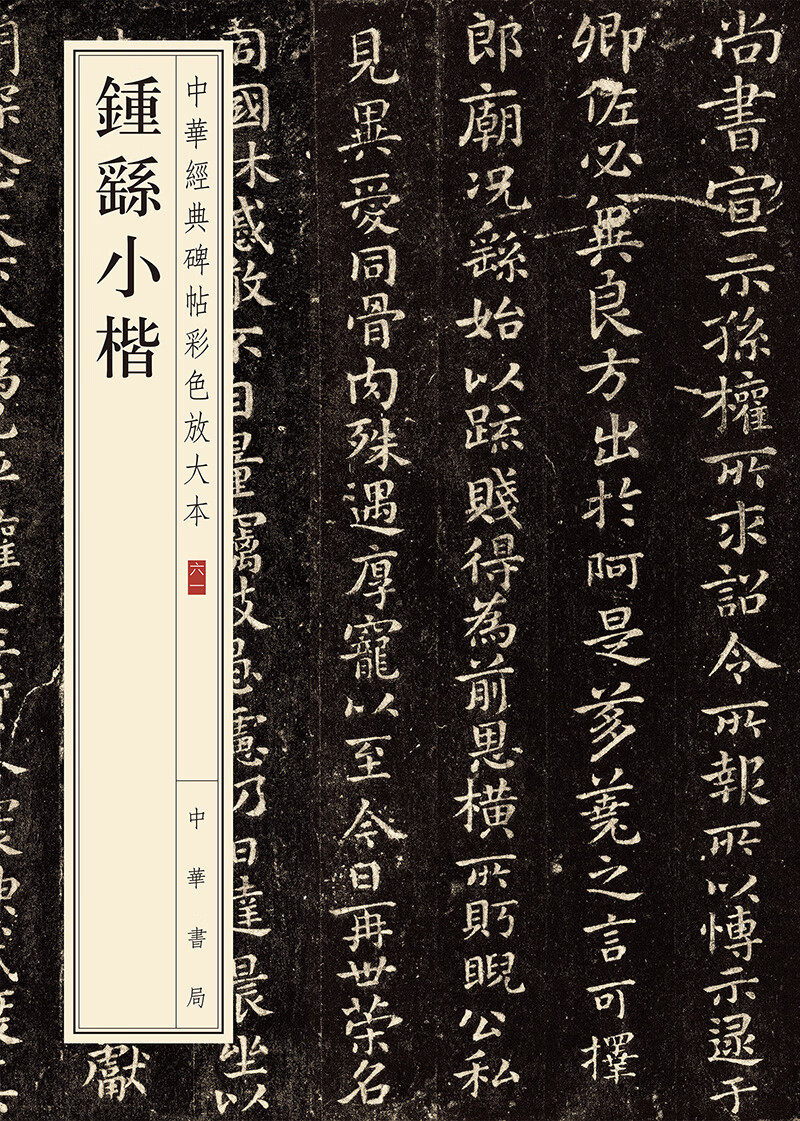 鍾繇小楷
中華經典碑帖彩色放大本
六一
中華書局
尚書宣示孫權所求詔令所報所以博示逮于
卿佐必異良方出於阿是芻蕘之言可擇
郎廟况繇始以疏賤得為前恩橫所盻睨公私
見異愛同骨肉殊遇厚寵以至今日再世榮名
同國休慼敢不自量竊致愚慮仍日達晨坐以
獻